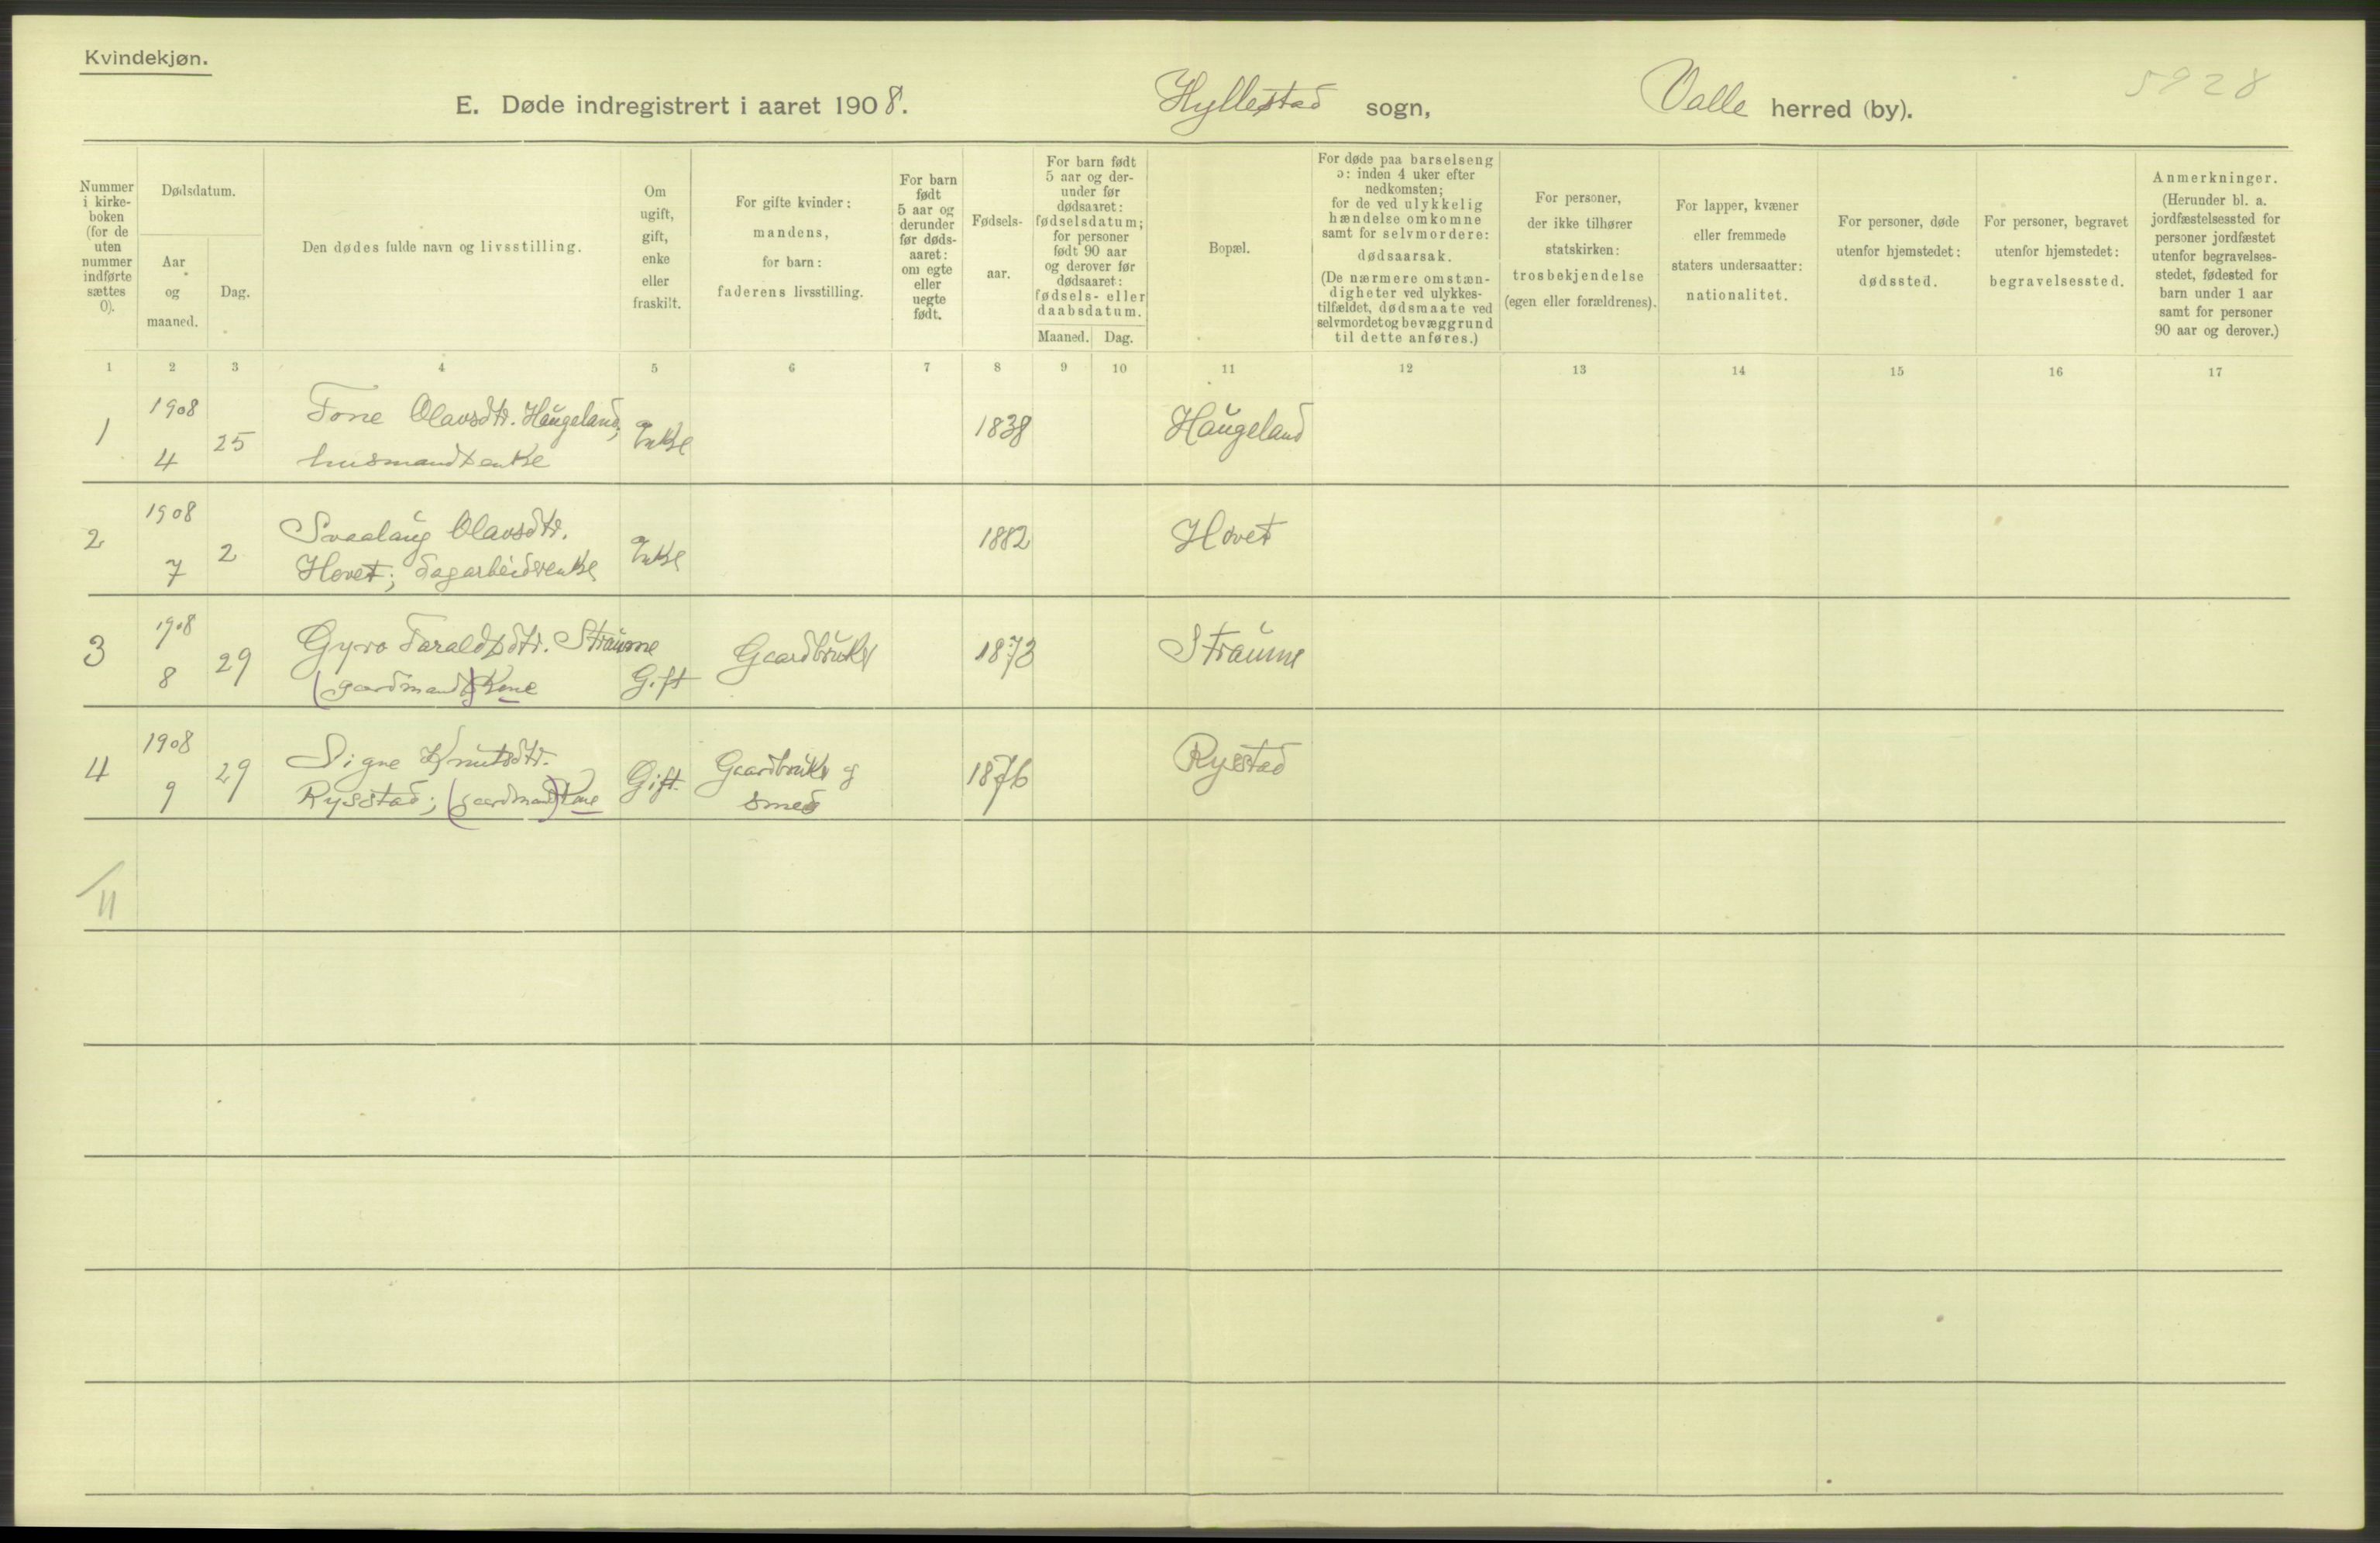 Kvindekjøn.
E. Døde indregistrert i aaret 1908. Hyllestad sogn, Valle herred (by). 5928
Nummer i kirkeboken (for de uten nummer indførte sættes 0).
Dødsdatum.
Aar og maaned.
Dag.
Den dødes fulde navn og livsstilling.
Om ugift, gift, enke eller fraskilt.
For gifte kvinder: mandens, for barn: faderens livsstilling.
For barn født 5 aar og derunder før dødsaaret: om egte eller uegte født.
Fødselsaar.
For barn født 5 aar og derunder før dødsaaret: fødselsdatum; for personer født 90 aar og derover før dødsaaret: fødsels- eller daabsdatum.
Maaned. Dag.
Bopæl.
For døde paa barselseng ɔ: inden 4 uker efter nedkomsten; for de ved ulykkelig hændelse omkomne samt for selvmordere: dødsaarsak. (De nærmere omstændigheter ved ulykkestilfældet, dødsmaate ved selvmordet og bevæggrund til dette anføres.)
For personer, der ikke tilhører statskirken: trosbekjendelse (egen eller forældrenes).
For lapper, kvæner eller fremmede staters undersaatter: nationalitet.
For personer, døde utenfor hjemstedet: dødssted.
For personer, begravet utenfor hjemstedet: begravelsessted.
Anmerkninger. (Herunder bl. a. jordfæstelsessted for personer jordfæstet utenfor begravelsesstedet, fødested for barn under 1 aar samt for personer 90 aar og derover.)
1 2 3 4 5 6 7 8 9 10 11 12 13 14 15 16 17
1 1908 4 25 Tone Olavsdtr. Haugeland; Enke 1838 Haugeland
husmandsenke
2 1908 7 2 Svaalaug Olavsdtr. Enke 1882 Hovet
Hovet; dagarbeiderenke
3 1908 8 29 Gyro Taraldsdtr. Straume Gift Gaardbruker 1873 Straume
(gardmands) Kone
4 1908 9 29 Signe Knutsdtr. Gift. Gaardbruker og 1876 Rysstad
Rysstad; (gaardmands) Kone smed